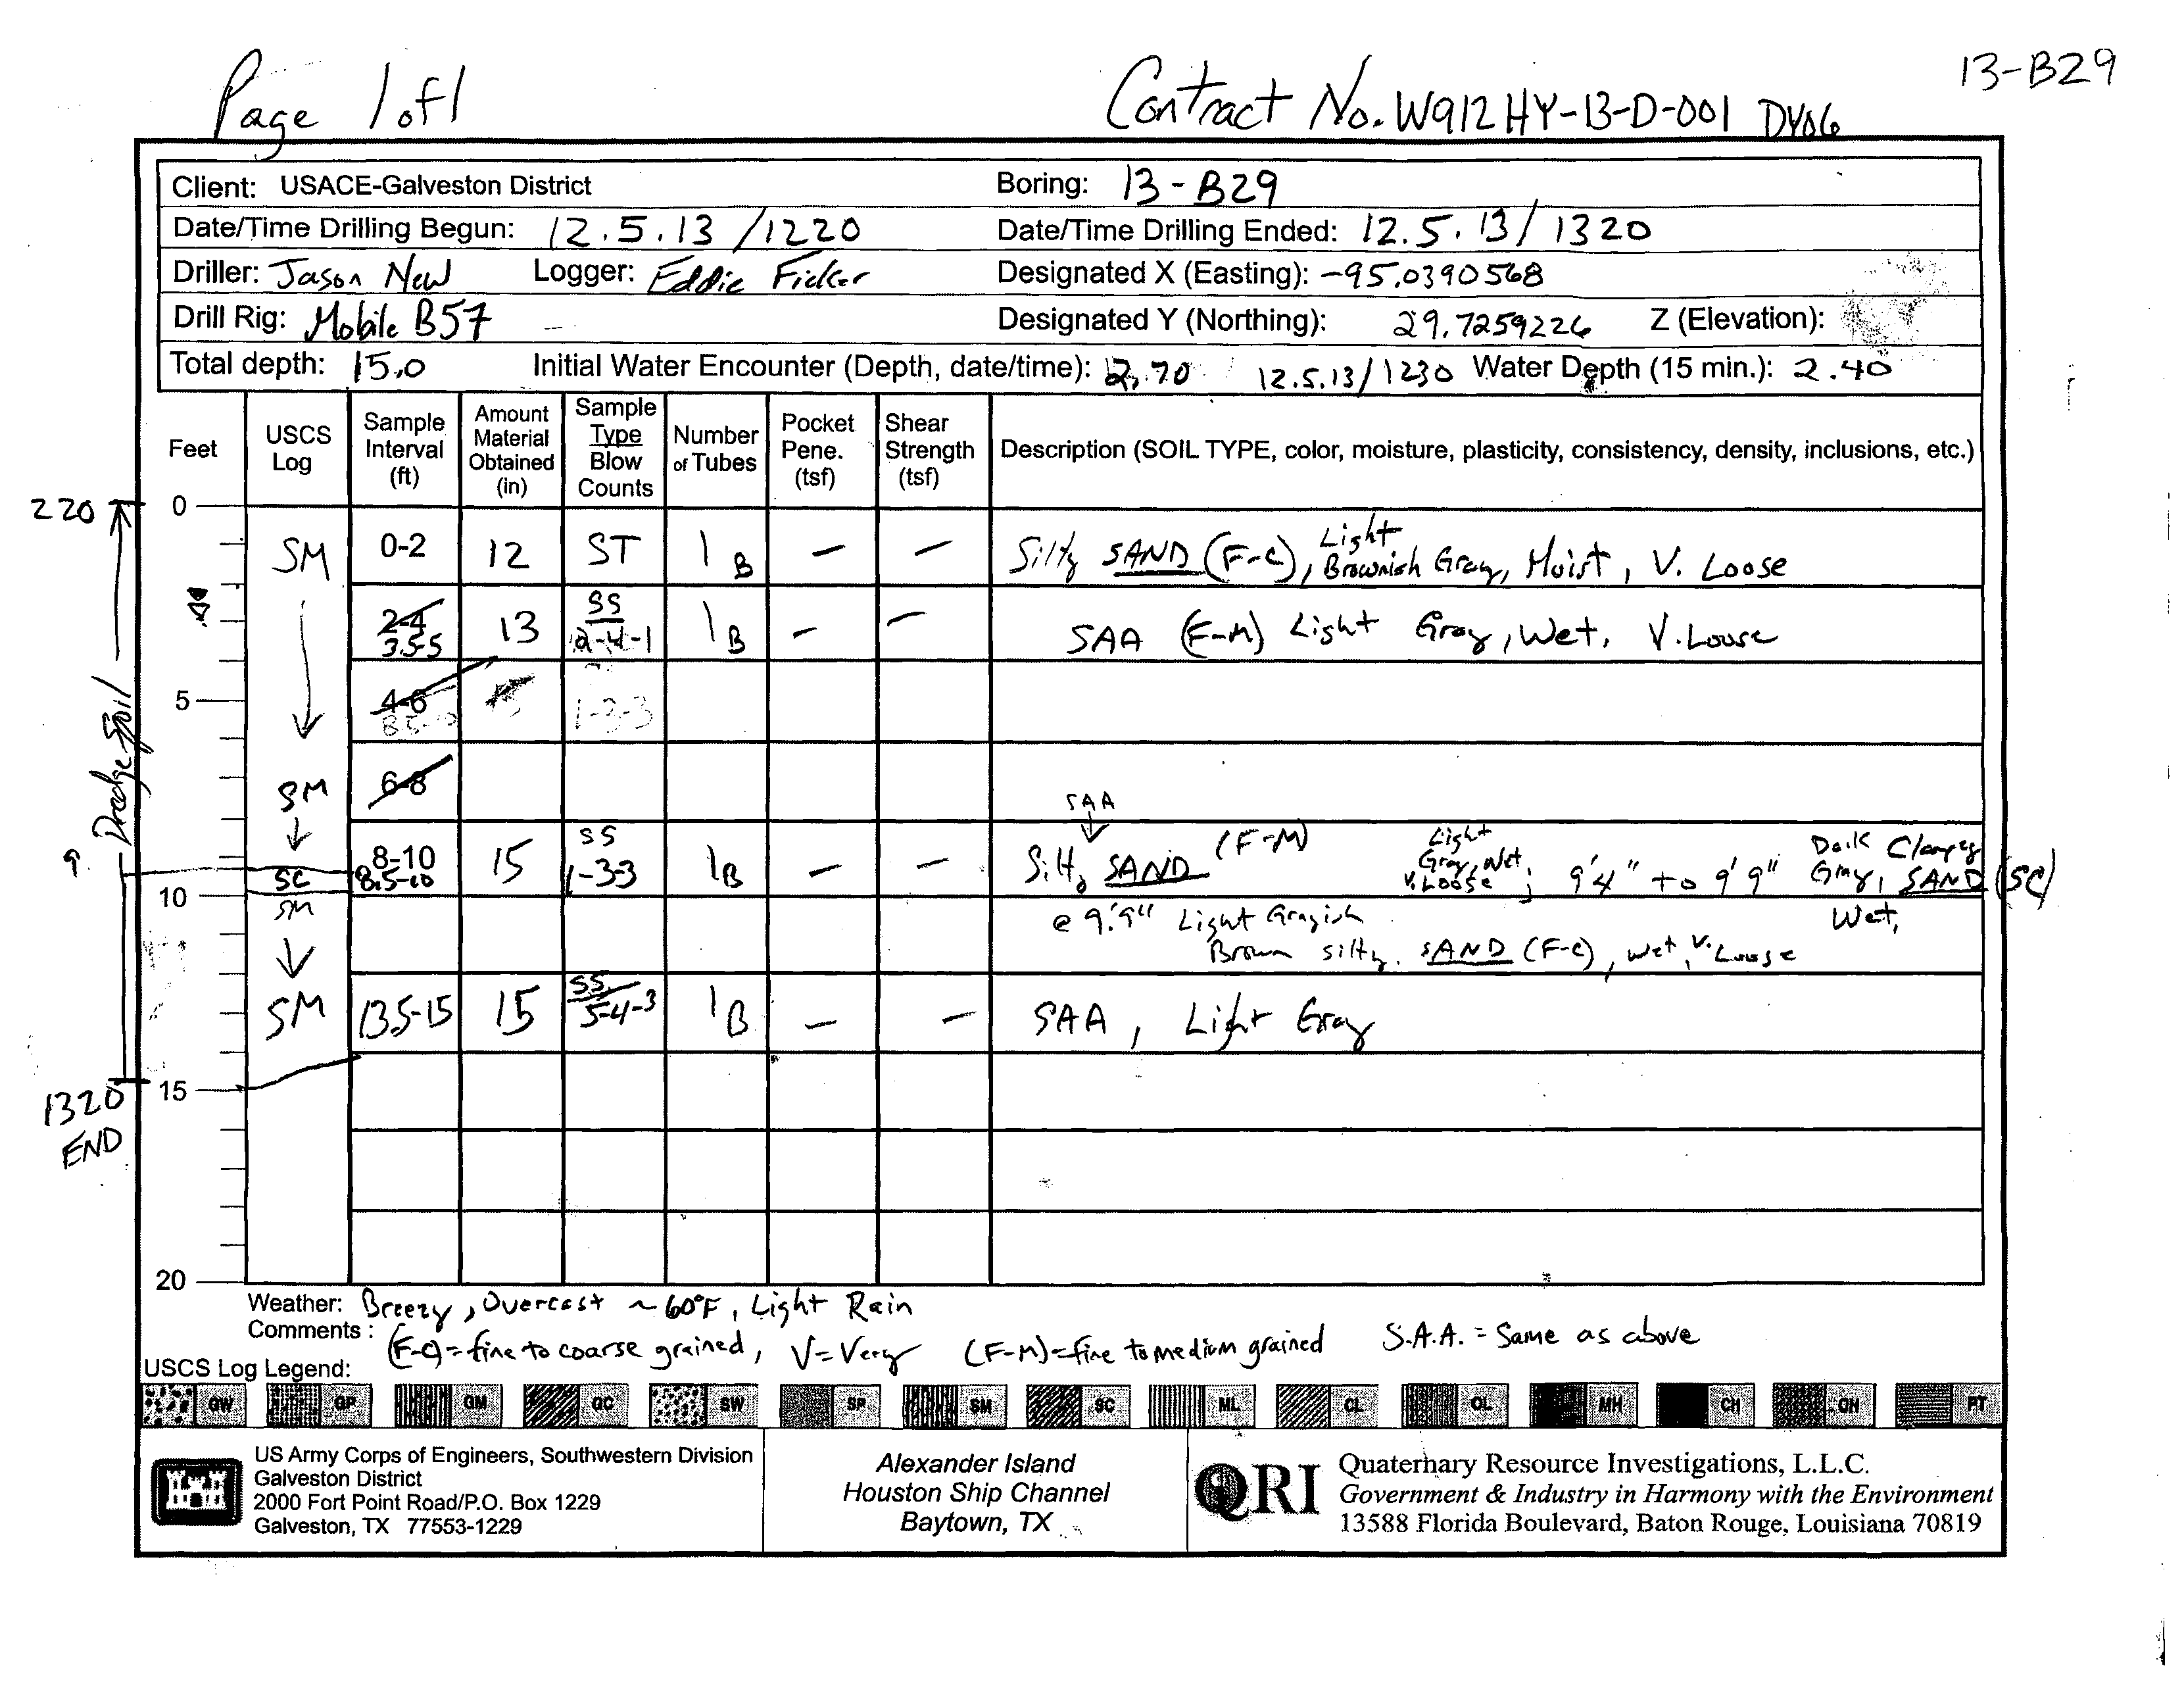 Page 1 of 1
Contract No. W912HY-13-D-001 DY06
13-B29
Client: USACE-Galveston District Boring: 13-B29
Date/Time Drilling Begun: 12.5.13 /1220 Date/Time Drilling Ended: 12.5.13/ 1320
Driller: Jason New Logger: Eddie Ficker Designated X (Easting): -95.0390568
Drill Rig: Mobile B57 Designated Y (Northing): 29.7259226 Z (Elevation):
Total depth: 15.0 Initial Water Encounter (Depth, date/time): 2.70 12.5.13/1230 Water Depth (15 min.): 2.40
Feet
USCS Log
Sample Interval (ft)
Amount Material Obtained (in)
Sample Type Blow Counts
Number of Tubes
Pocket Pene. (tsf)
Shear Strength (tsf)
Description (SOIL TYPE, color, moisture, plasticity, consistency, density, inclusions, etc.)
220 0
SM 0-2 12 ST 1 B — — Silty SAND (F-C), Light Brownish Gray, Moist, V. Loose
2-4 3.5-5 13 SS 2-4-1 1 B — — SAA (F-M) Light Gray, Wet, V. Loose
5 4-6 8.5-10 1-3-3
Dredge Spoil
SM 6-8
SAA
9 8-10 15 SS 1 B — — Silty SAND (F-M) Light Gray, Wet, V. Loose; 9'4" to 9'9" Dark Gray, Clayey SAND (SC)
SC 8.5-10 1-3-3
10 SM @ 9'9" Light Grayish Wet,
Brown silty SAND (F-C), wet, V. Loose
SM 13.5-15 15 SS 5-4-3 1 B — — SAA, Light Gray
1320 15
END
20
Weather: Breezy, Overcast ~60°F, Light Rain
Comments: (F-C)=fine to coarse grained, V=Very (F-M)=fine to medium grained S.A.A. = Same as above
USCS Log Legend:
GW GP GM GC SW SP SM SC ML CL OL MH CH OH PT
US Army Corps of Engineers, Southwestern Division
Galveston District
2000 Fort Point Road/P.O. Box 1229
Galveston, TX 77553-1229
Alexander Island
Houston Ship Channel
Baytown, TX
QRI
Quaternary Resource Investigations, L.L.C.
Government & Industry in Harmony with the Environment
13588 Florida Boulevard, Baton Rouge, Louisiana 70819